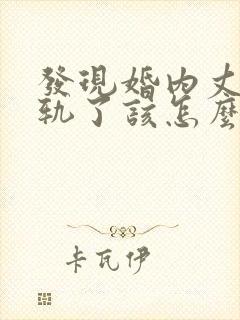 發現婚內丈
軌了該怎麼
卡瓦伊